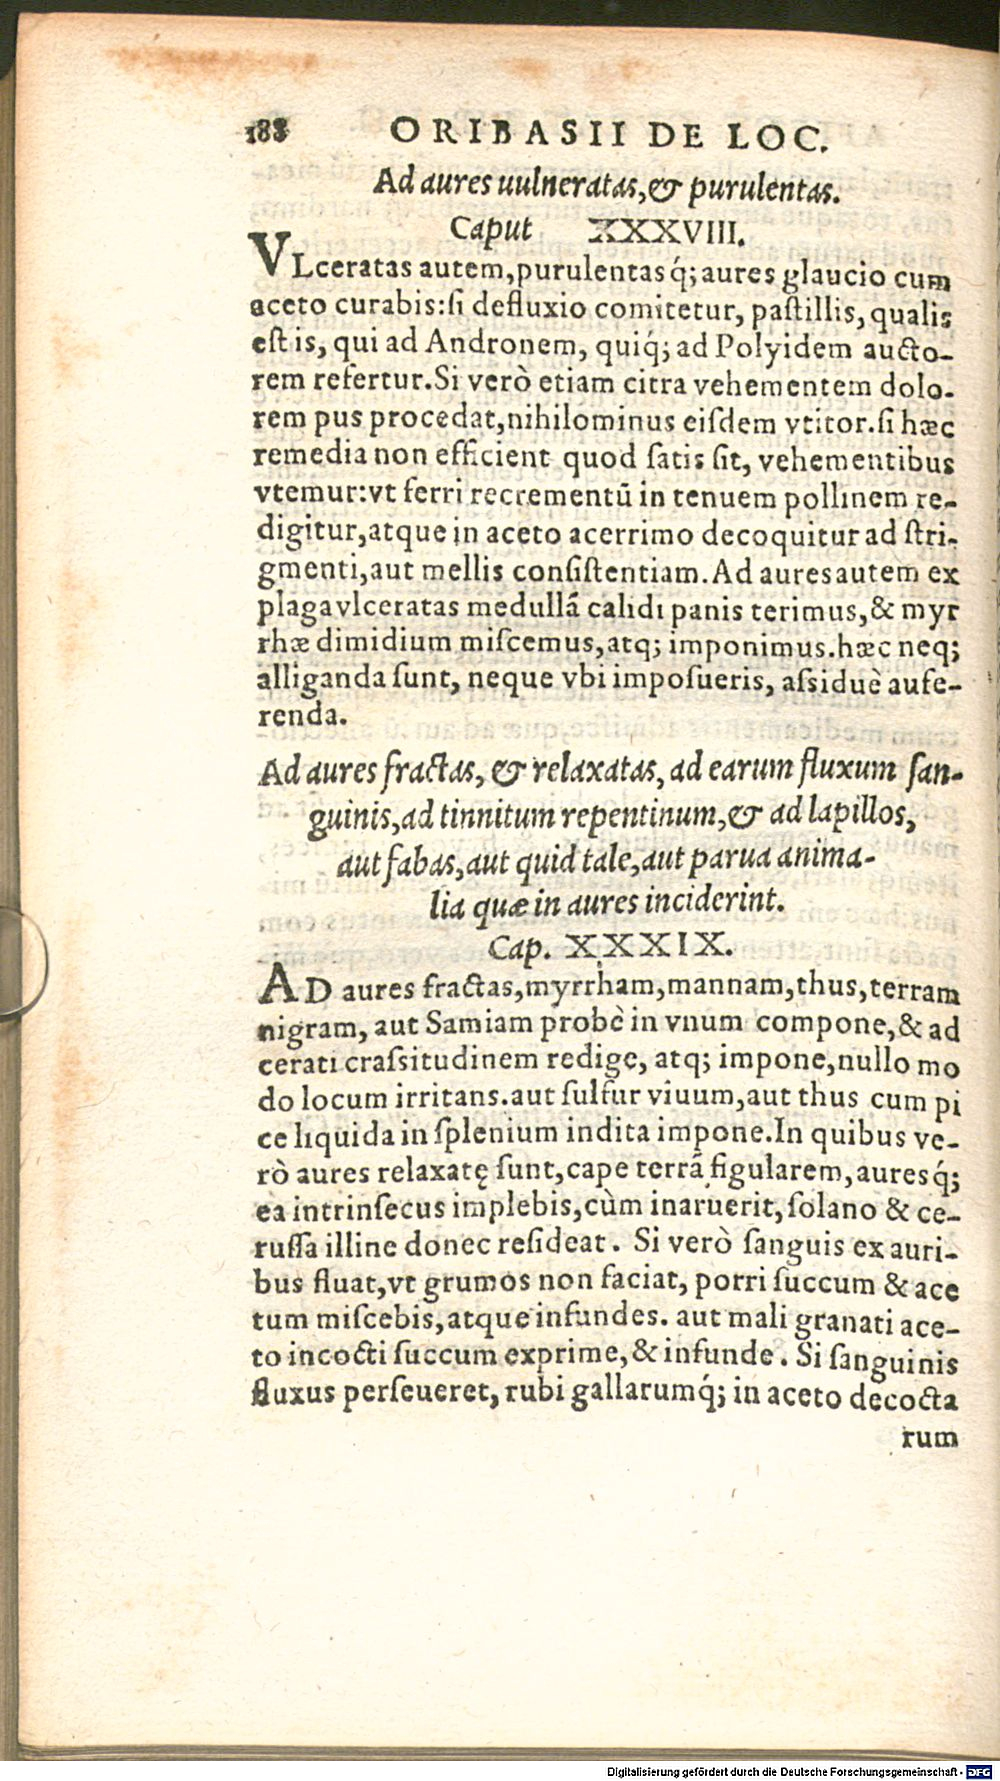 188 ORIBASII DE LOC.
Ad aures uulneratas, & purulentas.
Caput XXXVIII.
VLceratas autem, purulentasq́; aures glaucio cum
aceto curabis: si defluxio comitetur, pastillis, qualis
est is, qui ad Andronem, quiq́; ad Polyidem aucto-
rem refertur. Si verò etiam citra vehementem dolo-
rem pus procedat, nihilominus eisdem vtitor. si hæc
remedia non efficient quod satis sit, vehementibus
vtemur: vt ferri recrementũ in tenuem pollinem re-
digitur, atque in aceto acerrimo decoquitur ad stri-
gmenti, aut mellis consistentiam. Ad aures autem ex
plaga vlceratas medullã calidi panis terimus, & myr
rhæ dimidium miscemus, atq; imponimus. hæc neq;
alliganda sunt, neque vbi imposueris, assiduè aufe-
renda.
Ad aures fractas, & relaxatas, ad earum fluxum san-
guinis, ad tinnitum repentinum, & ad lapillos,
aut fabas, aut quid tale, aut parua anima-
lia quæ in aures inciderint.
Cap. XXXIX.
AD aures fractas, myrrham, mannam, thus, terram
nigram, aut Samiam probè in vnum compone, & ad
cerati crassitudinem redige, atq; impone, nullo mo
do locum irritans. aut sulfur viuum, aut thus cum pi
ce liquida in splenium indita impone. In quibus ve-
rò aures relaxatę sunt, cape terrã figularem, auresq́;
ea intrinsecus implebis, cùm inaruerit, solano & ce-
russa illine donec resideat. Si verò sanguis ex auri-
bus fluat, vt grumos non faciat, porri succum & ace
tum miscebis, atque infundes. aut mali granati ace-
to incocti succum exprime, & infunde. Si sanguinis
fluxus perseueret, rubi gallarumq́; in aceto decocta
rum
Digitalisierung gefördert durch die Deutsche Forschungsgemeinschaft - DFG